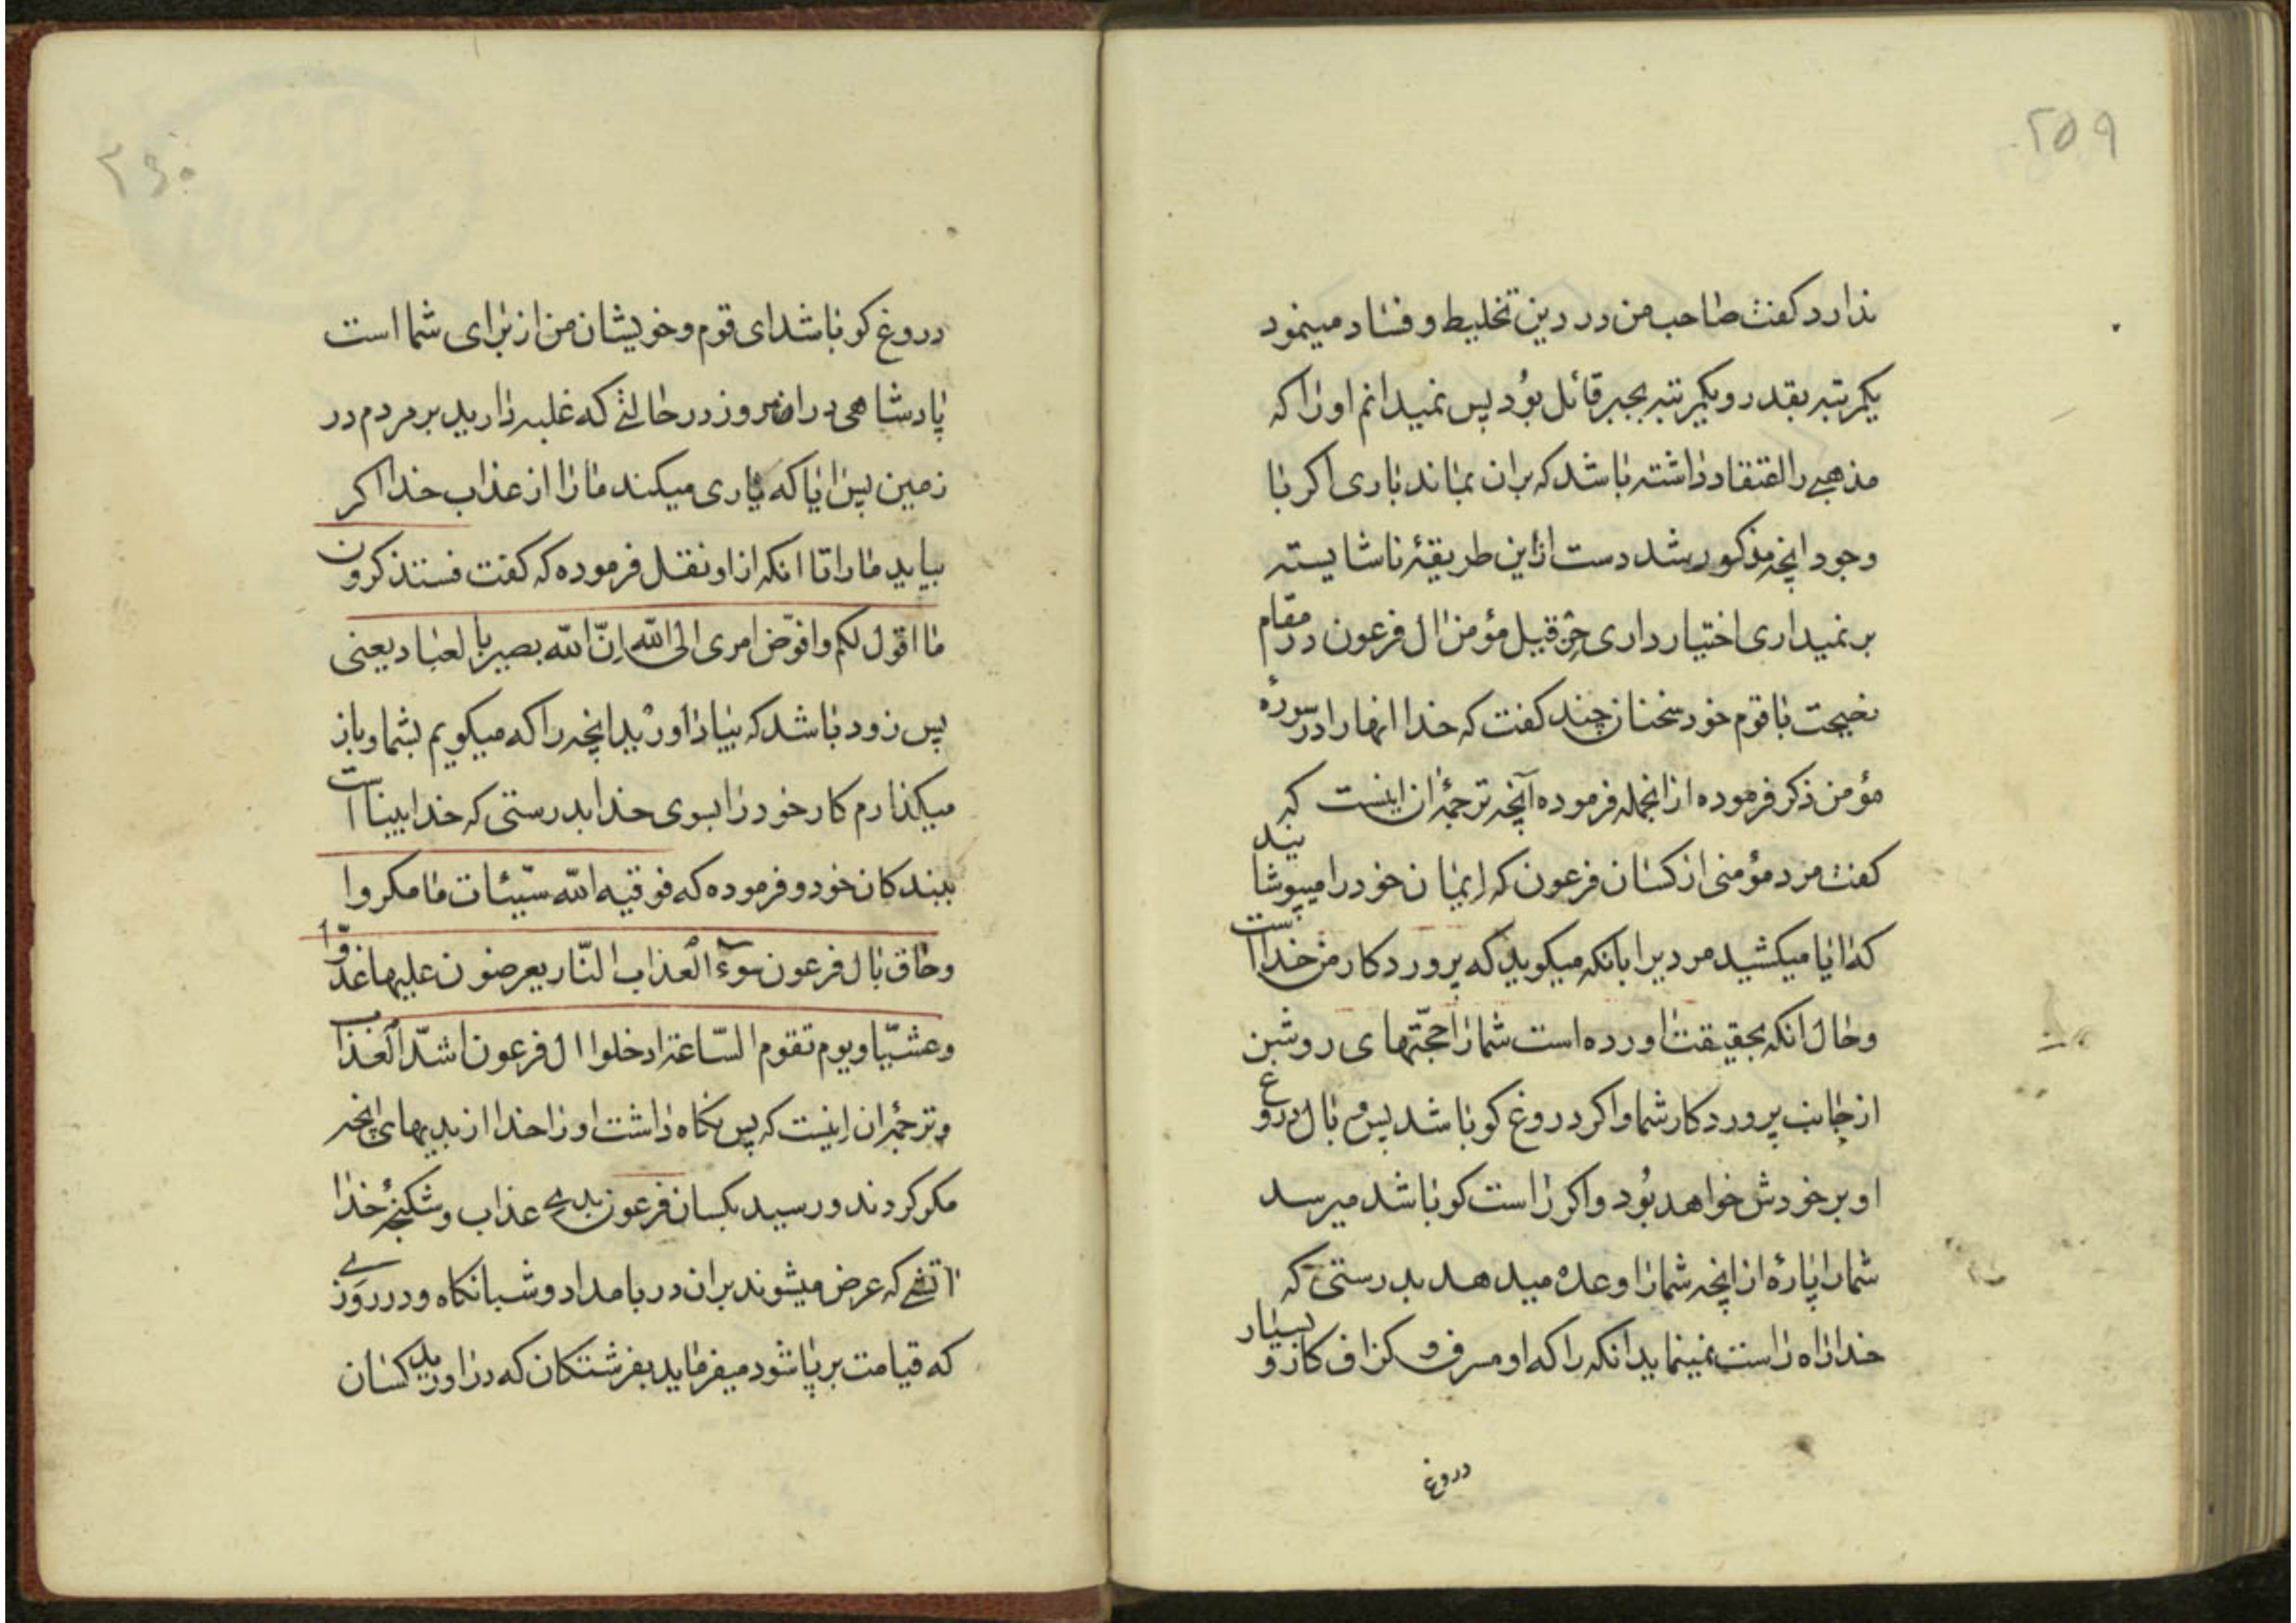 ۲۵۹
ندارد کفت صاحب من در دین تخلیط و فساد مینمود
یکمرتبه بقدر و یکمرتبه بجبر قائل بُود پس نمیدانم او را که
مذهبی را اعتقاد داشته باشد که بران بماند باری اکر با
وجود انچه مذکور شد دست ازاین طریقهٔ ناشایسته
بر نمیداری اختیار داری حزقیل مؤمن ال فرعون در مقام
نصیحت با قوم خود سخنان چند کفت که خدا انها را در سورهٔ
مؤمن ذکر فرموده ازانجمله فرموده آنچه ترجمهٔ ان اینست که
کفت مرد مؤمنی از کسان فرعون که ایمان خود را میپوشانید
که ایا میکشید مردیرا بانکه میکوید که پروردکار من خداست
و حال انکه بحقیقت اورده است شما را حجّتهای روشن
از جانب پروردکار شما و اکر دروغ کو باشد پس وبال دروغ
او بر خودش خواهد بُود و اکر راست کو باشد میرسد
شما را پارهٔ از انچه شما را وعده میدهد بدرستی که
خدا راه راست نمینماید انکه را که او مسرف و کزاف کار و بسیار
دروغ
۲۶۰
دروغ کو باشد ای قوم و خویشان من از برای شما است
پادشاهی در امروز در حالتی که غلبه دارید بر مردم در
زمین پس ایا که یاری میکند ما را از عذاب خدا اکر
بیاید ما را تا انکه از او نقل فرموده که کفت فستذکرون
ما اقول لکم و افوّض امری الی الله انّ الله بصیر بالعباد یعنی
پس زود باشد که بیاد اورید انچه را که میکویم بشما و باز
میکذارم کار خود را بسوی خدا بدرستی که خدا بینا است
ببندکان خود و فرموده که فوقیه الله سیّئات ما مکروا
و حاق بال فرعون سوءٓ العذاب النّار یعرضون علیها غدوّا
و عشیّا و یوم تقوم السّاعة ادخلوا ال فرعون اشدّ العذاب
و ترجمهٔ ان اینست که پس نکاه داشت او را خدا از بدیهای انچه
مکر کردند و رسید بکسان فرعون بدی عذاب و شکنجهٔ خدا
اتشی که عرض میشوند بران در بامداد و شبانکاه و در روزی
که قیامت بر پا شود میفرماید بفرشتکان که در اورید کسان